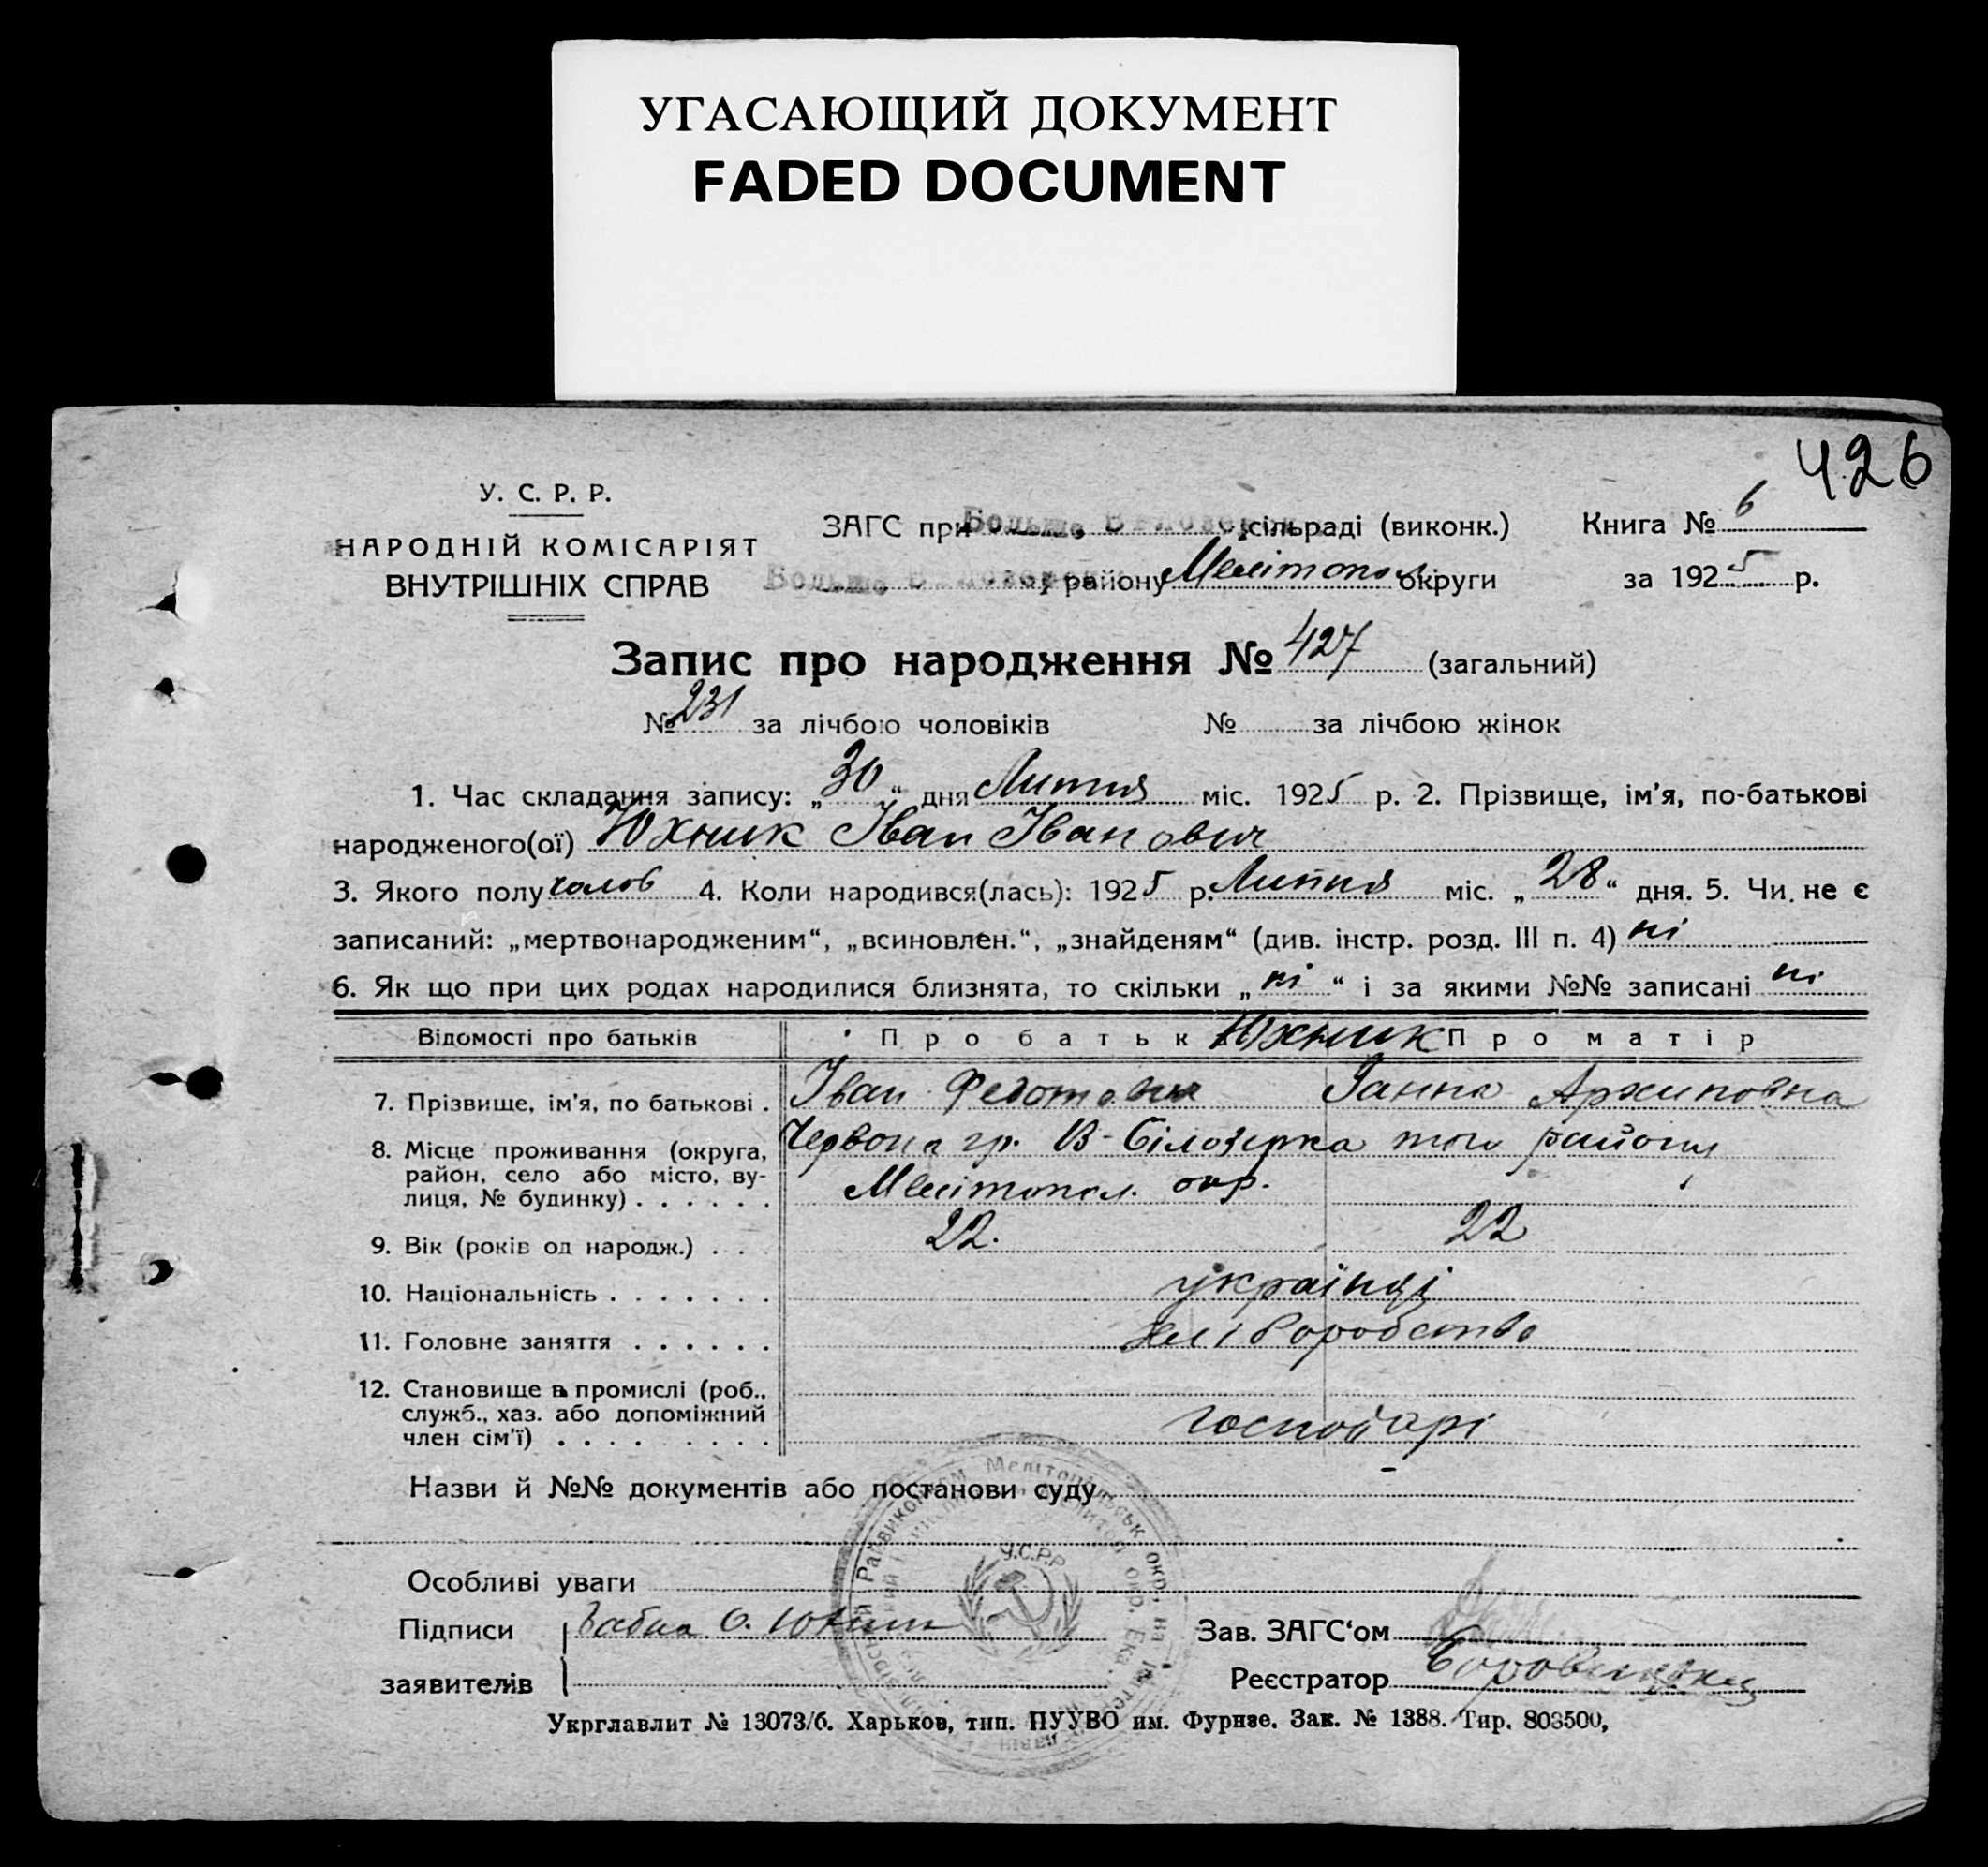 УГАСАЮЩИЙ ДОКУМЕНТ
FADED DOCUMENT
426
У. С. Р. Р.
НАРОДНІЙ КОМІСАРІЯТ
ВНУТРІШНІХ СПРАВ
ЗАГС при Больше Белозерск сільраді (виконк.) Книга № 6
Больше Белозерск району Мелітопол. округи за 1925 р.
Запис про народження № 427 (загальний)
№ 231 за лічбою чоловіків № за лічбою жінок
1. Час складання запису: „30“ дня Липня міс. 1925 р. 2. Прізвище, ім'я, по-батькові
народженого(ої) Юхник Іван Іванович
3. Якого полу чолов 4. Коли народився(лась): 1925 р. Липня міс. „28“ дня. 5. Чи не є
записаний: „мертвонародженим“, „всиновлен.“, „знайденям“ (див. інстр. розд. III п. 4) ні
6. Як що при цих родах народилися близнята, то скільки „ні“ і за якими №№ записані ні
Відомості про батьків Про батьк Юхник Про матір
7. Прізвище, ім'я, по батькові . Іван Федотович Ганна Архиповна
8. Місце проживання (округа, Червона гр. В-Білозерка того району
район, село або місто, ву-
лиця, № будинку) . . . . . . Мелітопол. окр.
9. Вік (років од народж.) . . . 22. 22
10. Національність . . . . . . . українці
11. Головне заняття . . . . . . хліборобство
12. Становище в промислі (роб.,
служб., хаз. або допоміжний
член сім'ї) . . . . . . . . . господарі
Назви й №№ документів або постанови суду -
Особливі уваги
У.С.Р.Р
Підписи Бабка О. Юхник Зав. ЗАГС‘ом
заявителів Реєстратор
Укрглавлит № 13073/б. Харьков, тип. ПУУВО им. Фурнзе. Зак. № 1388. Тир. 803500,